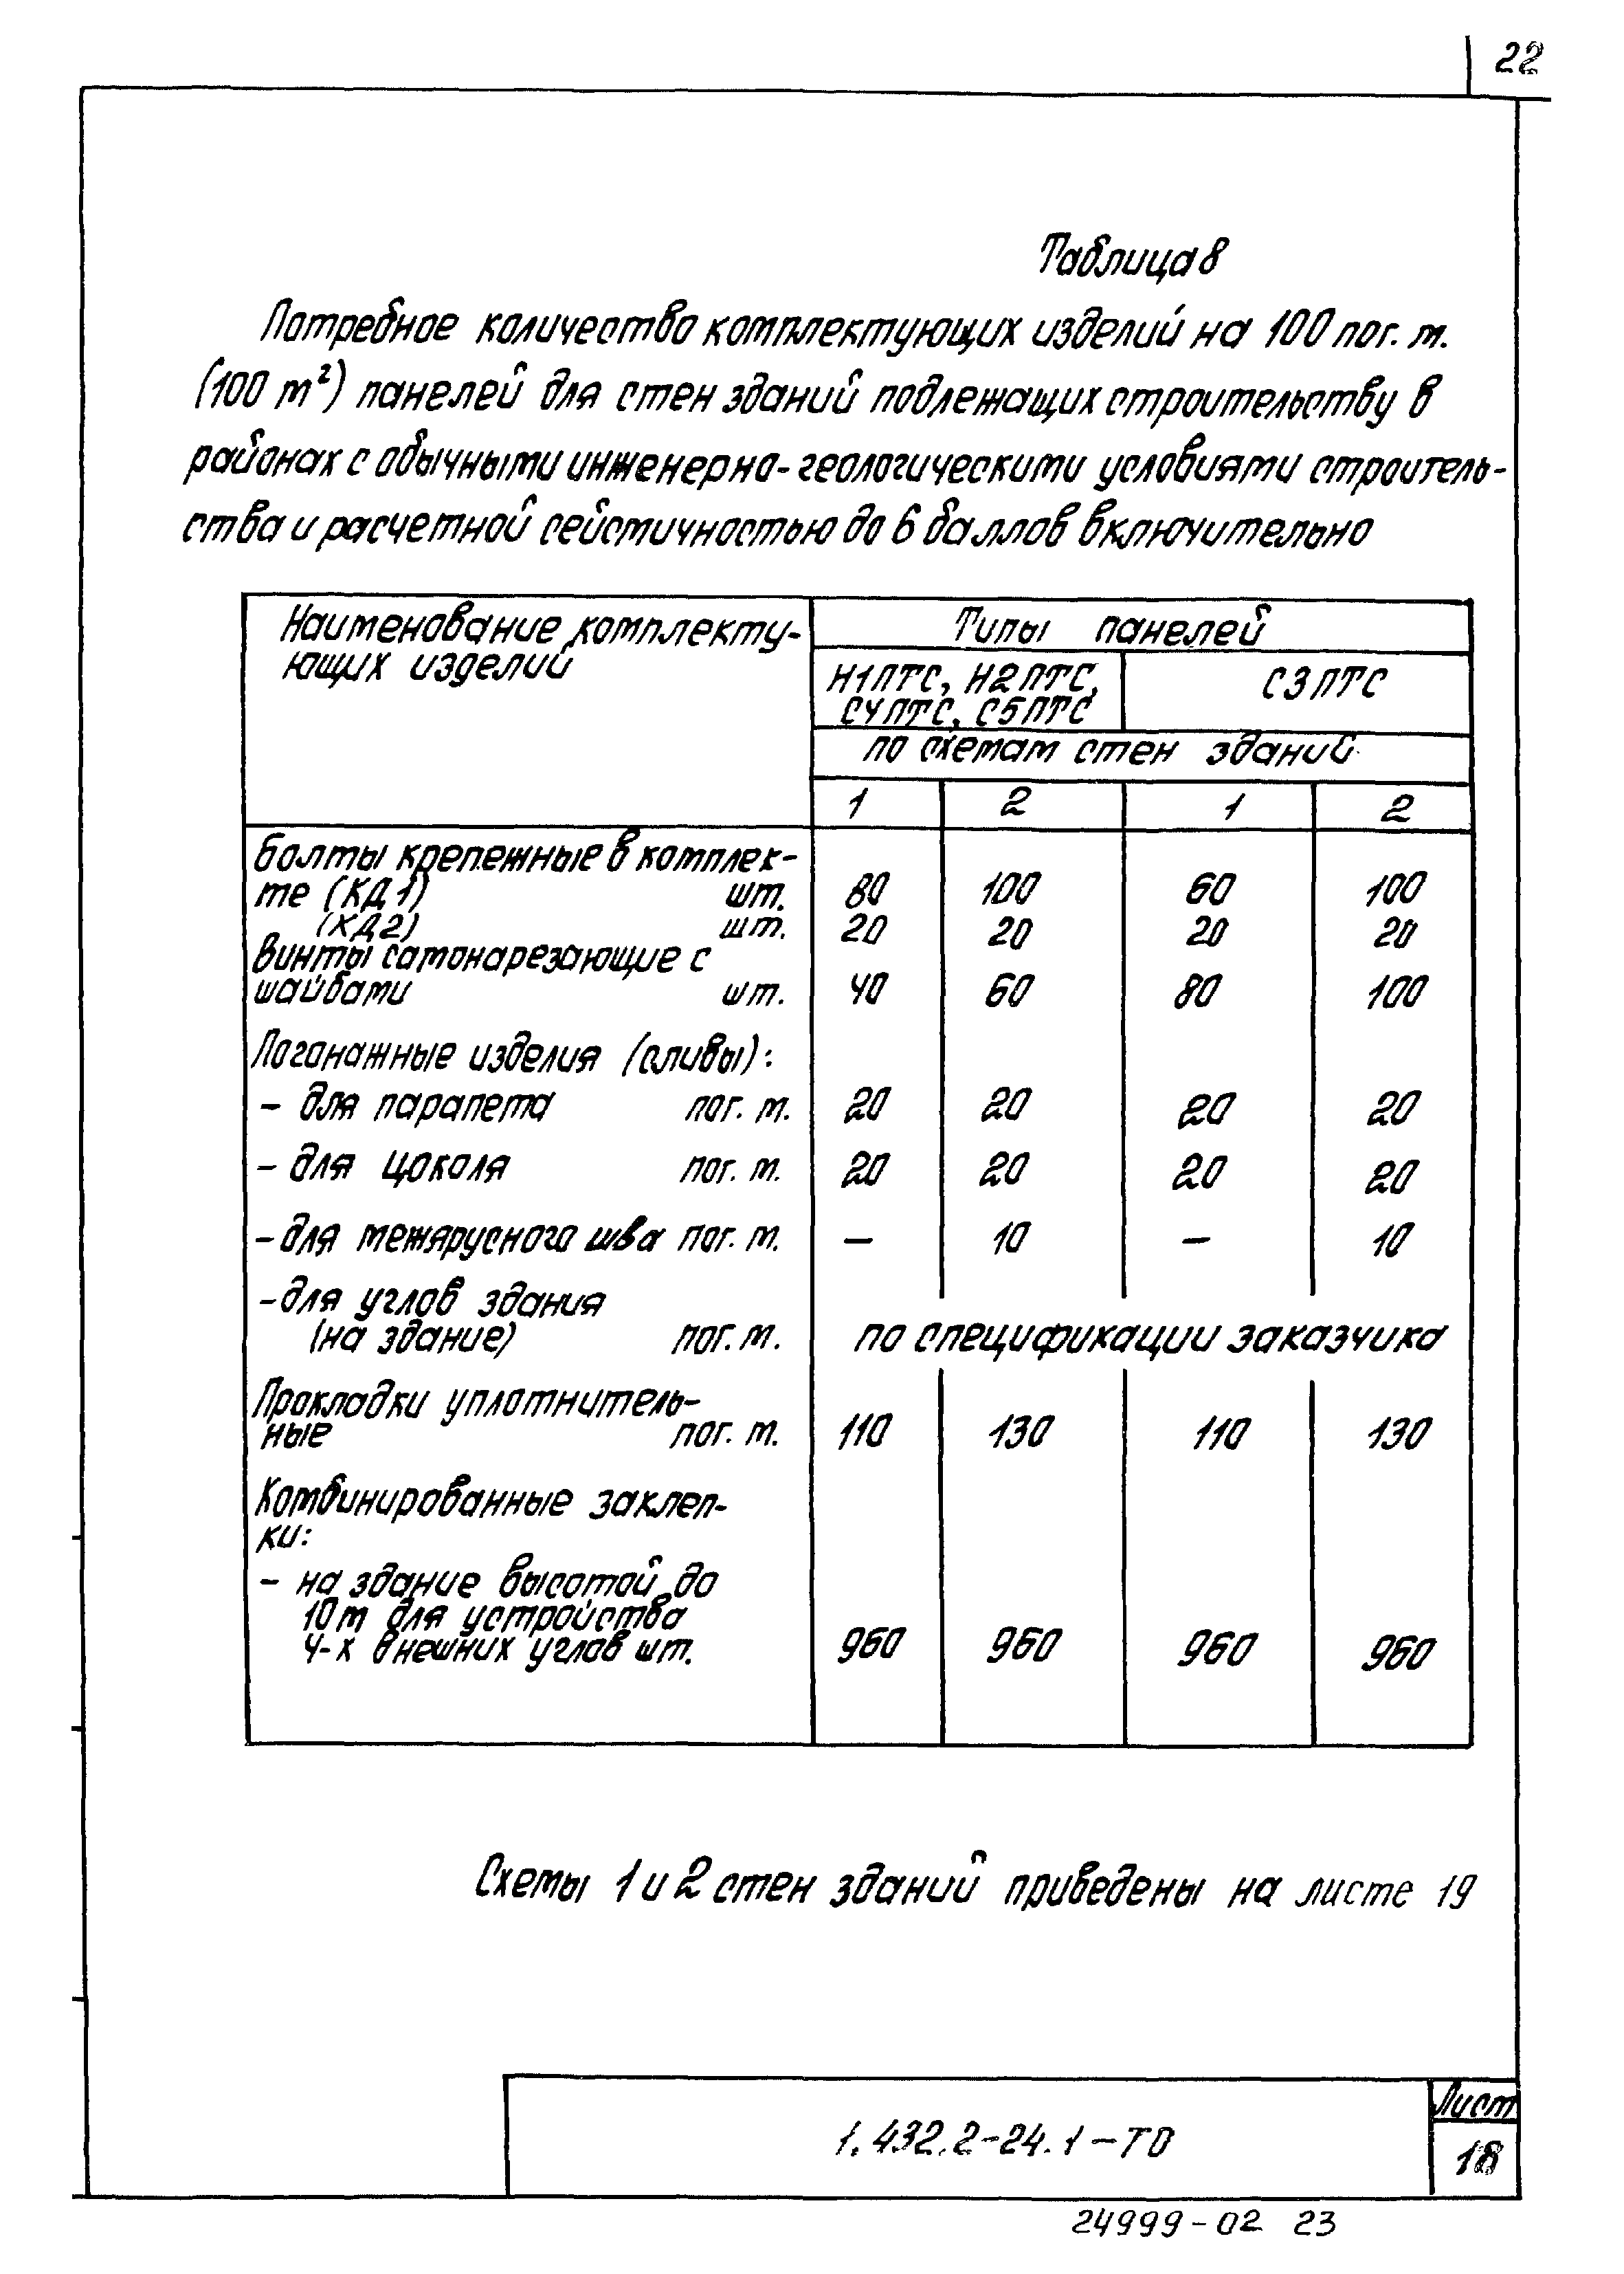 22
Таблица 8
Потребное количество комплектующих изделий на 100 пог. м.
(100 м²) панелей для стен зданий подлежащих строительству в
районах с обычными инженерно-геологическими условиями строитель-
ства и расчетной сейсмичностью до 6 баллов включительно
Наименование комплекту-
ющих изделий
Типы панелей
Н1ПТС, Н2ПТС, С3ПТС
С4ПТС, С5ПТС
по схемам стен зданий
1 2 1 2
Болты крепежные в комплек-
те (КД1) шт. 80 100 60 100
(КД2) шт. 20 20 20 20
Винты самонарезающие с
шайбами шт. 40 60 80 100
Погонажные изделия (сливы):
- для парапета пог. м. 20 20 20 20
- для цоколя пог. м. 20 20 20 20
- для межярусного шва пог. м. — 10 — 10
- для углов здания
(на здание) пог. м. по спецификации заказчика
Прокладки уплотнитель-
ные пог. м. 110 130 110 130
Комбинированные заклеп-
ки:
- на здание высотой до
10 м для устройства
4-х внешних углов шт. 960 960 960 960
Схемы 1 и 2 стен зданий приведены на листе 19
1.432.2-24.1-ТО
Лист
18
24999-02 23